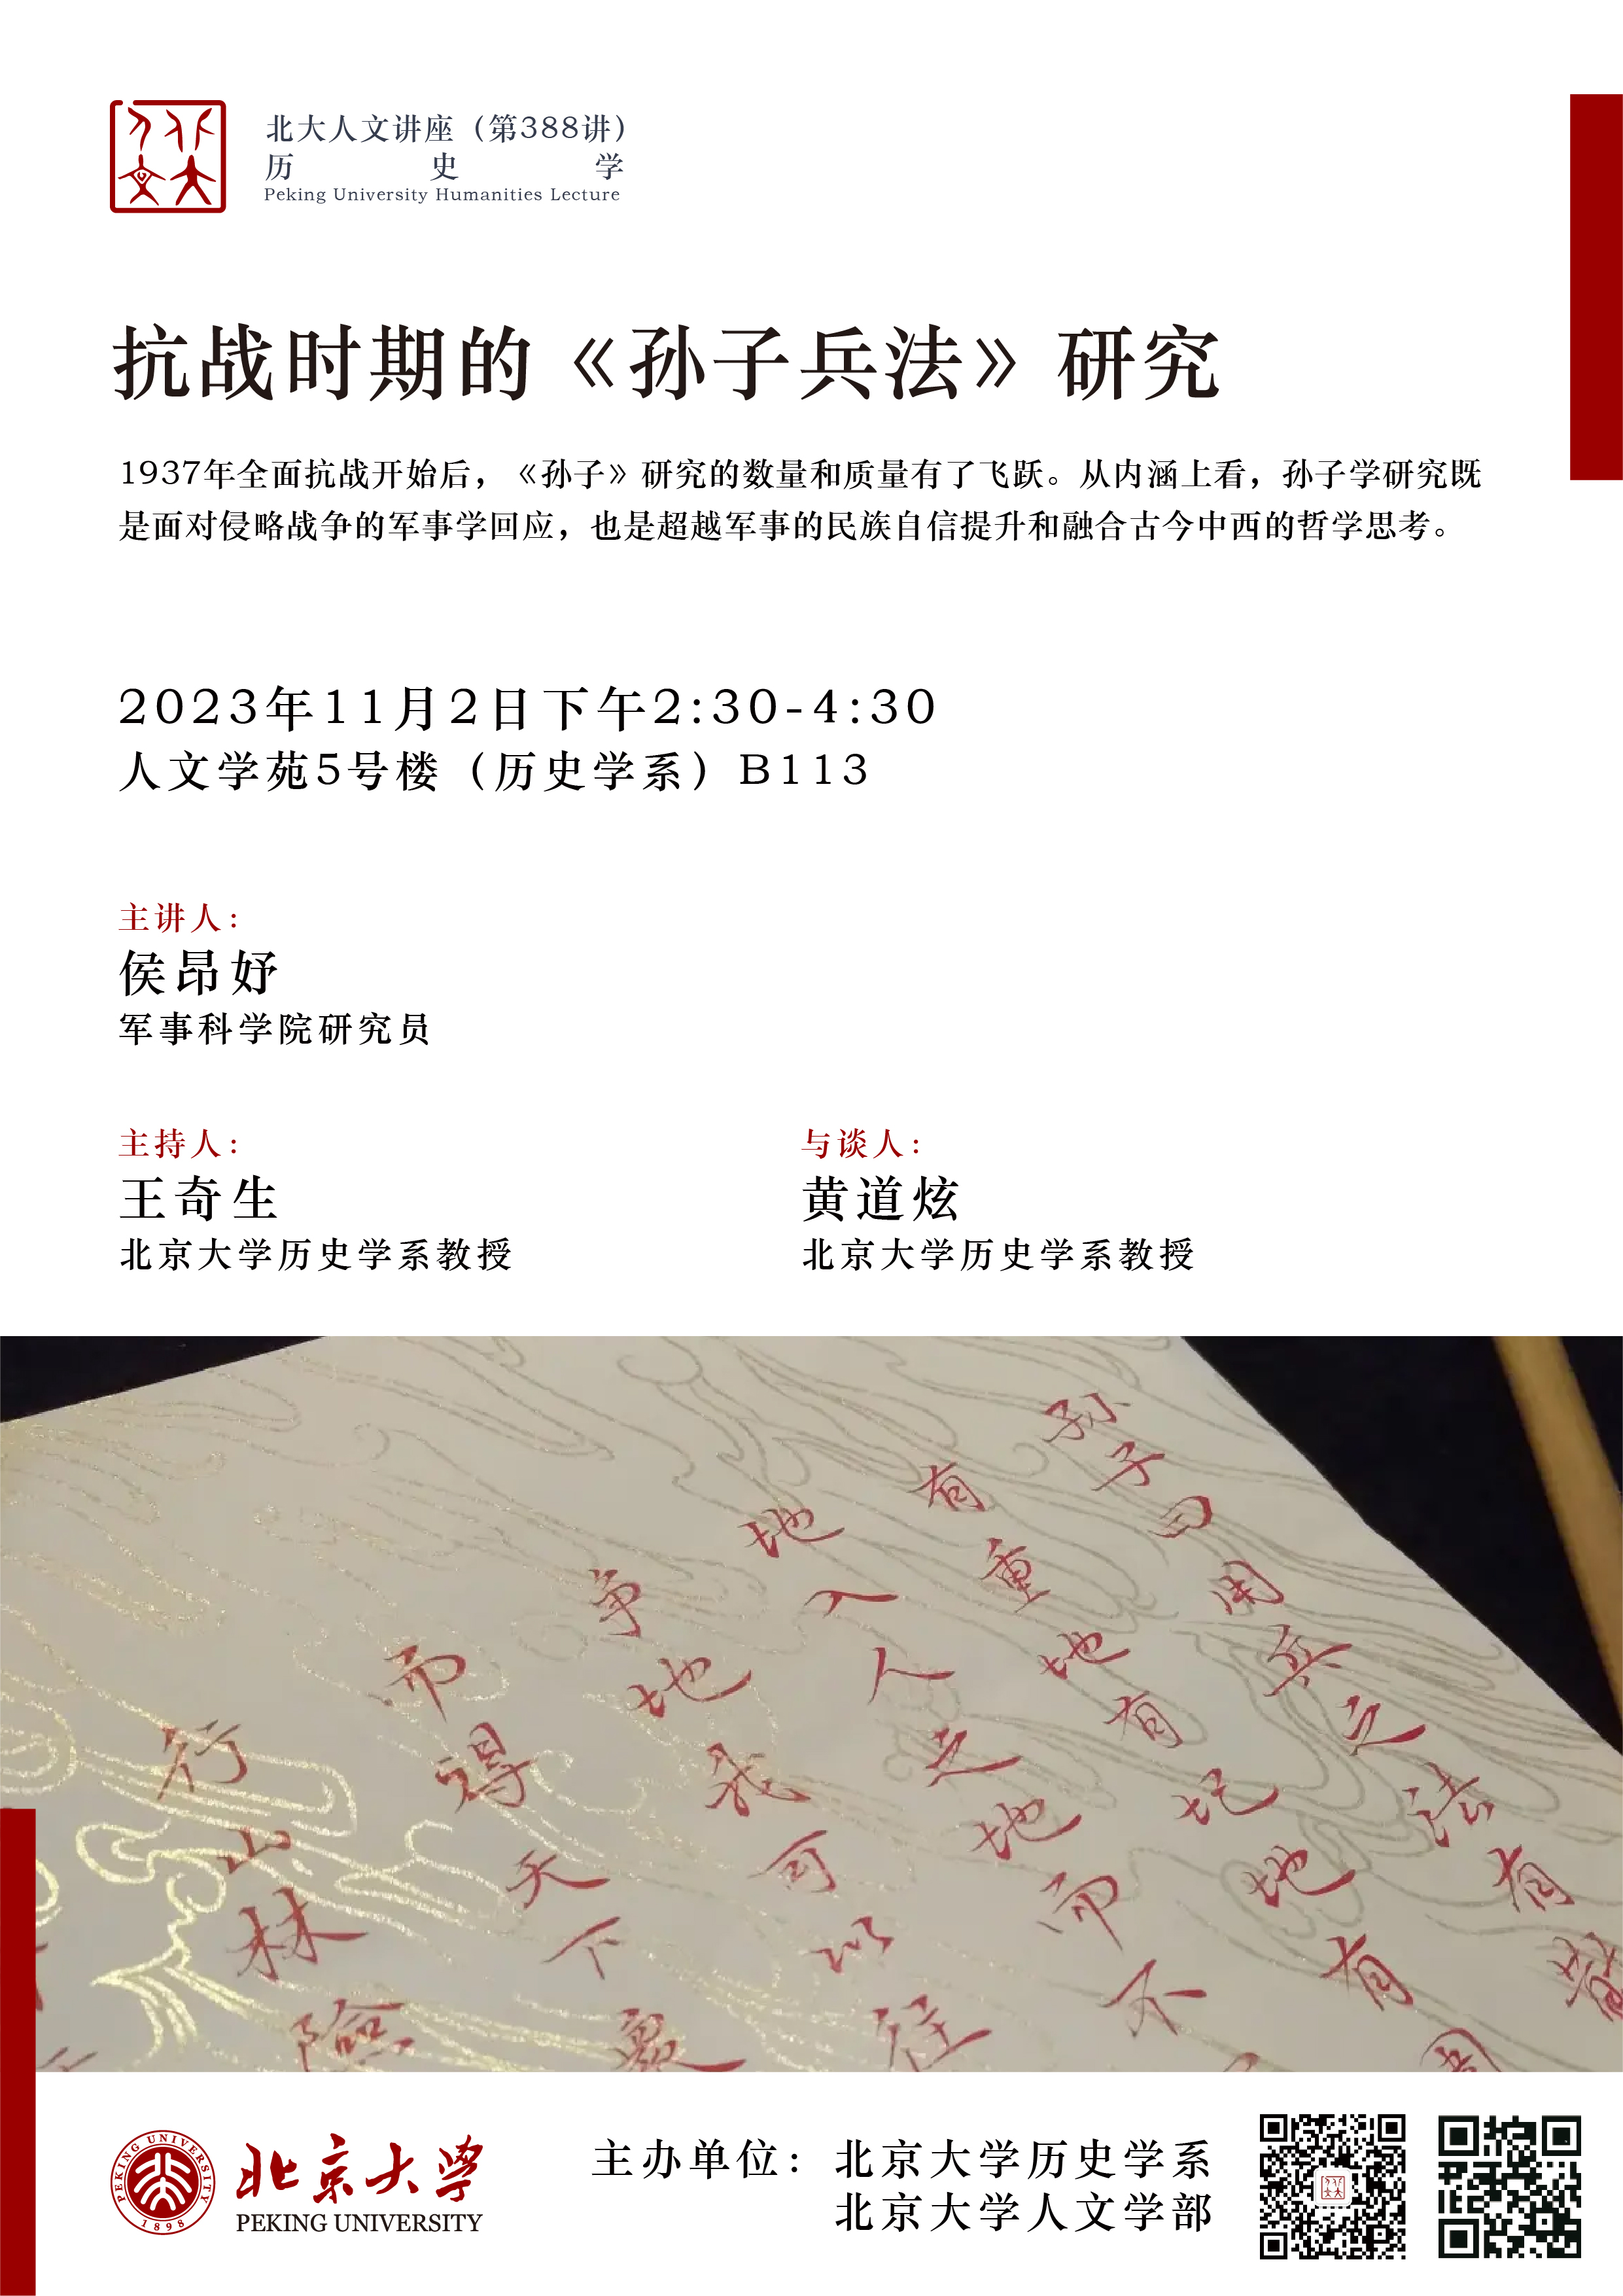 北大人文讲座（第388讲）
历史学
Peking University Humanities Lecture
抗战时期的《孙子兵法》研究
1937年全面抗战开始后，《孙子》研究的数量和质量有了飞跃。从内涵上看，孙子学研究既
是面对侵略战争的军事学回应，也是超越军事的民族自信提升和融合古今中西的哲学思考。
2023年11月2日下午2:30-4:30
人文学苑5号楼（历史学系）B113
主讲人：
侯昂妤
军事科学院研究员
主持人：
王奇生
北京大学历史学系教授
与谈人：
黄道炫
北京大学历史学系教授
孙子曰用兵之法有散
有重地有圮地有围
地入人之地而不
争地我可以往
而得天下
行山林險
PEKING UNIVERSITY
1898
北京大学
PEKING UNIVERSITY
主办单位：北京大学历史学系
北京大学人文学部